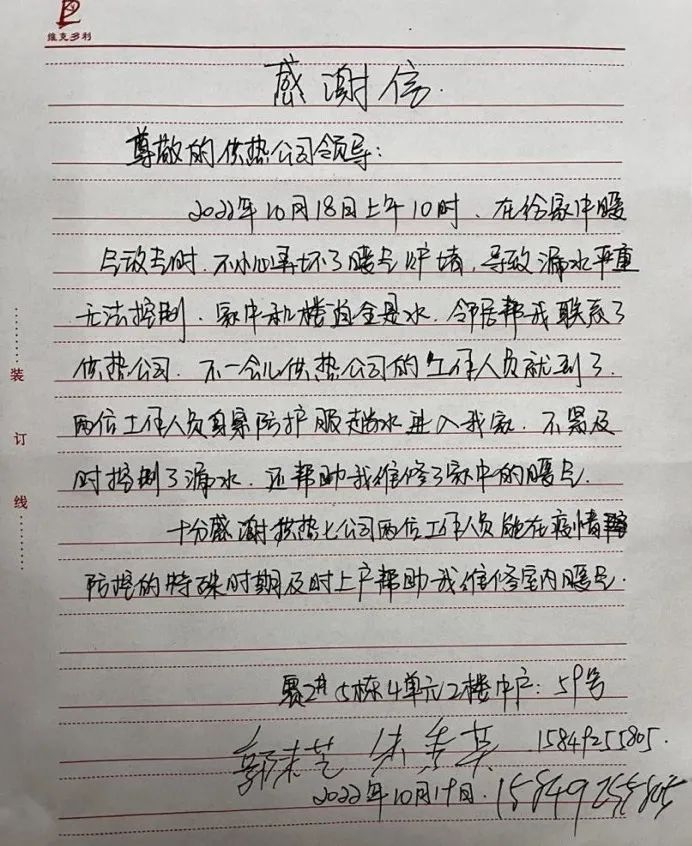 维克多利
感谢信
尊敬的供热公司领导:
2022年10月18日上午10时、在给家中暖
气放气时.不小心弄坏了暖气炉堵,导致漏水严重
无法控制.家中和楼道全是水.邻居帮我联系了
供热公司.不一会儿供热公司的工作人员就到了.
两位工作人员身穿防护服趟水进入我家.不紧及
时控制了漏水.还帮助我维修了家中的暖气.
十分感谢供热七公司两位工作人员能在疫情
防控的特殊时期及时上户帮助我维修室内暖气.
5栋4单元2楼中户:59号
15849255805.
2022年10月19日.15849255805
装
订
线